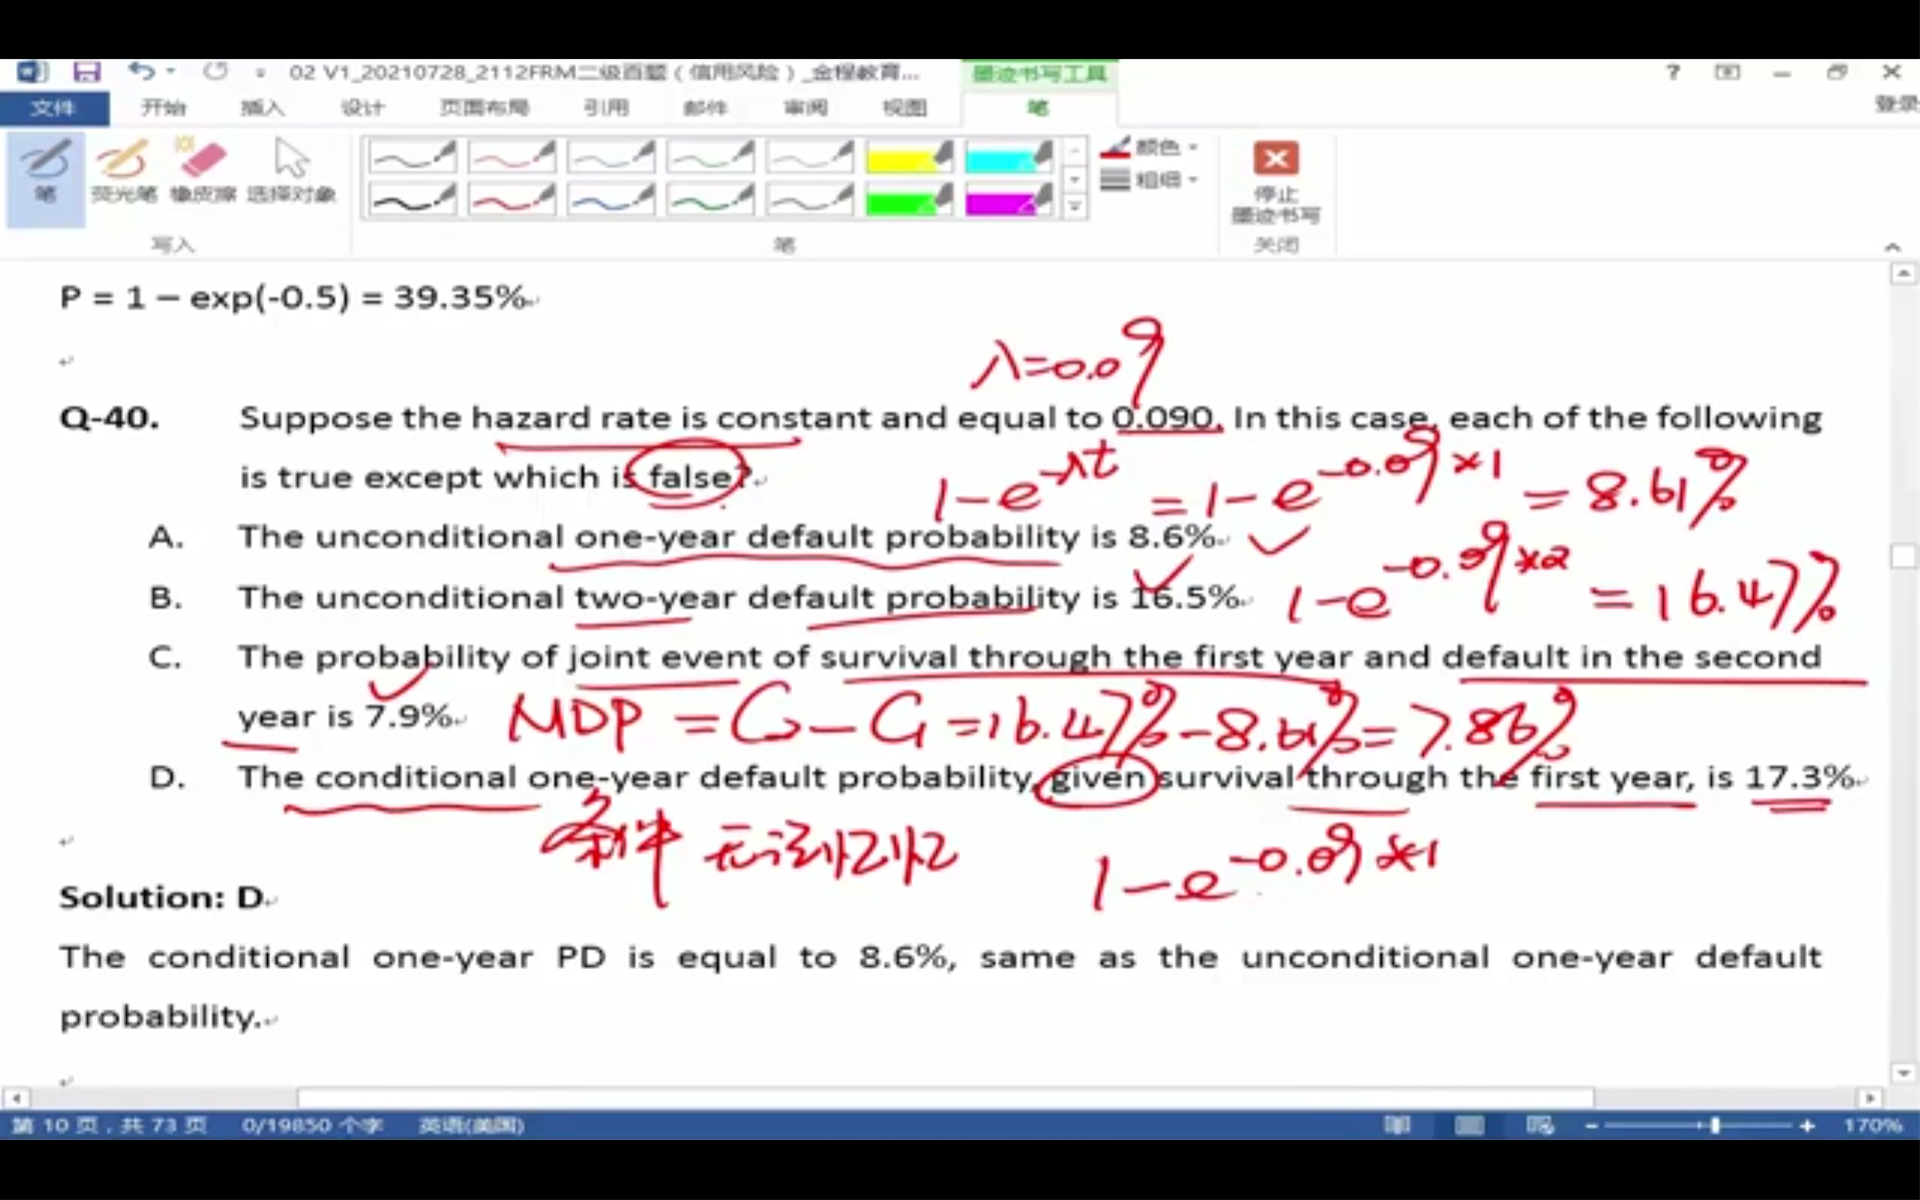 02 V1_20210728_2112FRM二级百题（信用风险）_金程教育...
墨迹书写工具
?
文件
开始
插入
设计
页面布局
引用
邮件
审阅
视图
笔
登录
笔
荧光笔
橡皮擦
选择对象
颜色
粗细
停止
墨迹书写
写入
笔
关闭
P = 1 – exp(-0.5) = 39.35%
λ=0.09
Q-40. Suppose the hazard rate is constant and equal to 0.090. In this case, each of the following
is true except which is false?
1-e^-λt = 1-e^-0.09×1 = 8.61%
A. The unconditional one-year default probability is 8.6%
B. The unconditional two-year default probability is 16.5%
1-e^-0.09×2 = 16.47%
C. The probability of joint event of survival through the first year and default in the second
year is 7.9%
MDP = C₂ - C₁ = 16.47% - 8.61% = 7.86%
D. The conditional one-year default probability, given survival through the first year, is 17.3%
条件 无记忆性
1-e^-0.09×1
Solution: D
The conditional one-year PD is equal to 8.6%, same as the unconditional one-year default
probability.
第 10 页，共 73 页
0/19850 个字
英语(美国)
170%